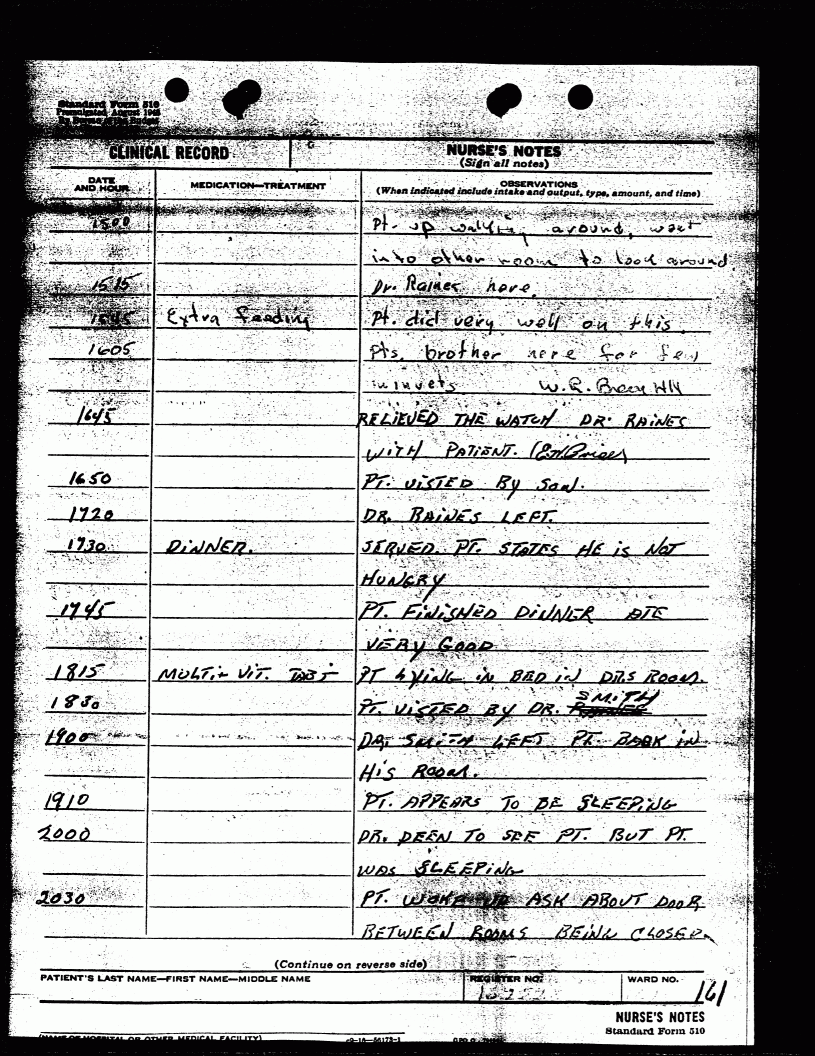 Standard Form 510
Promulgated August 1948
By Bureau of the Budget
CLINICAL RECORD
NURSE'S NOTES
(Sign all notes)
DATE AND HOUR
MEDICATION—TREATMENT
OBSERVATIONS
(When indicated include intake and output, type, amount, and time)
1500 Pt. up walking around, went
into other room to look around.
1515 Dr. Raines here.
1545 Extra feeding Pt. did very well on this.
1605 Pts. brother here for few
minuets W.R. HN
1645 RELIEVED THE WATCH DR. RAINES
WITH PATIENT.
1650 PT. VISTED BY SON.
1720 DR. RAINES LEFT.
1730 DINNER. SERVED. PT. STATES HE IS NOT
HUNGRY
1745 PT. FINISHED DINNER ATE
VERY GOOD
1815 MULTI- VIT. TAB i PT LYING IN BED IN DR.S ROOM.
1830 PT. VISTED BY DR. SMITH
1900 DR. SMITH LEFT PT. BACK IN
HIS ROOM.
1910 PT. APPEARS TO BE SLEEPING
2000 DR. DEEN TO SEE PT. BUT PT.
WAS SLEEPING
2030 PT. WOKE UP ASK ABOUT DOOR
BETWEEN ROOMS BEING CLOSED.
(Continue on reverse side)
PATIENT'S LAST NAME—FIRST NAME—MIDDLE NAME
REGISTER NO.
WARD NO.
161
NURSE'S NOTES
Standard Form 510
(NAME OF HOSPITAL OR OTHER MEDICAL FACILITY)